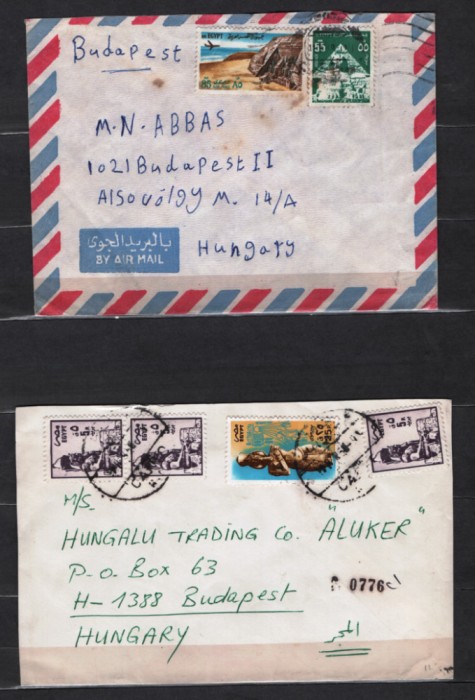 Budapest
55 ٥٥
M.N. ABBAS
1021 Budapest II
Alsovólgy M. 14/A
Hungary
بالبريد الجوى
BY AIR MAIL
مصر EGYPT
مصر EGYPT
مصر EGYPT
M/S.
HUNGALU TRADING Co. "ALUKER"
P.O. Box 63
H-1388 Budapest
HUNGARY
0776
المجر